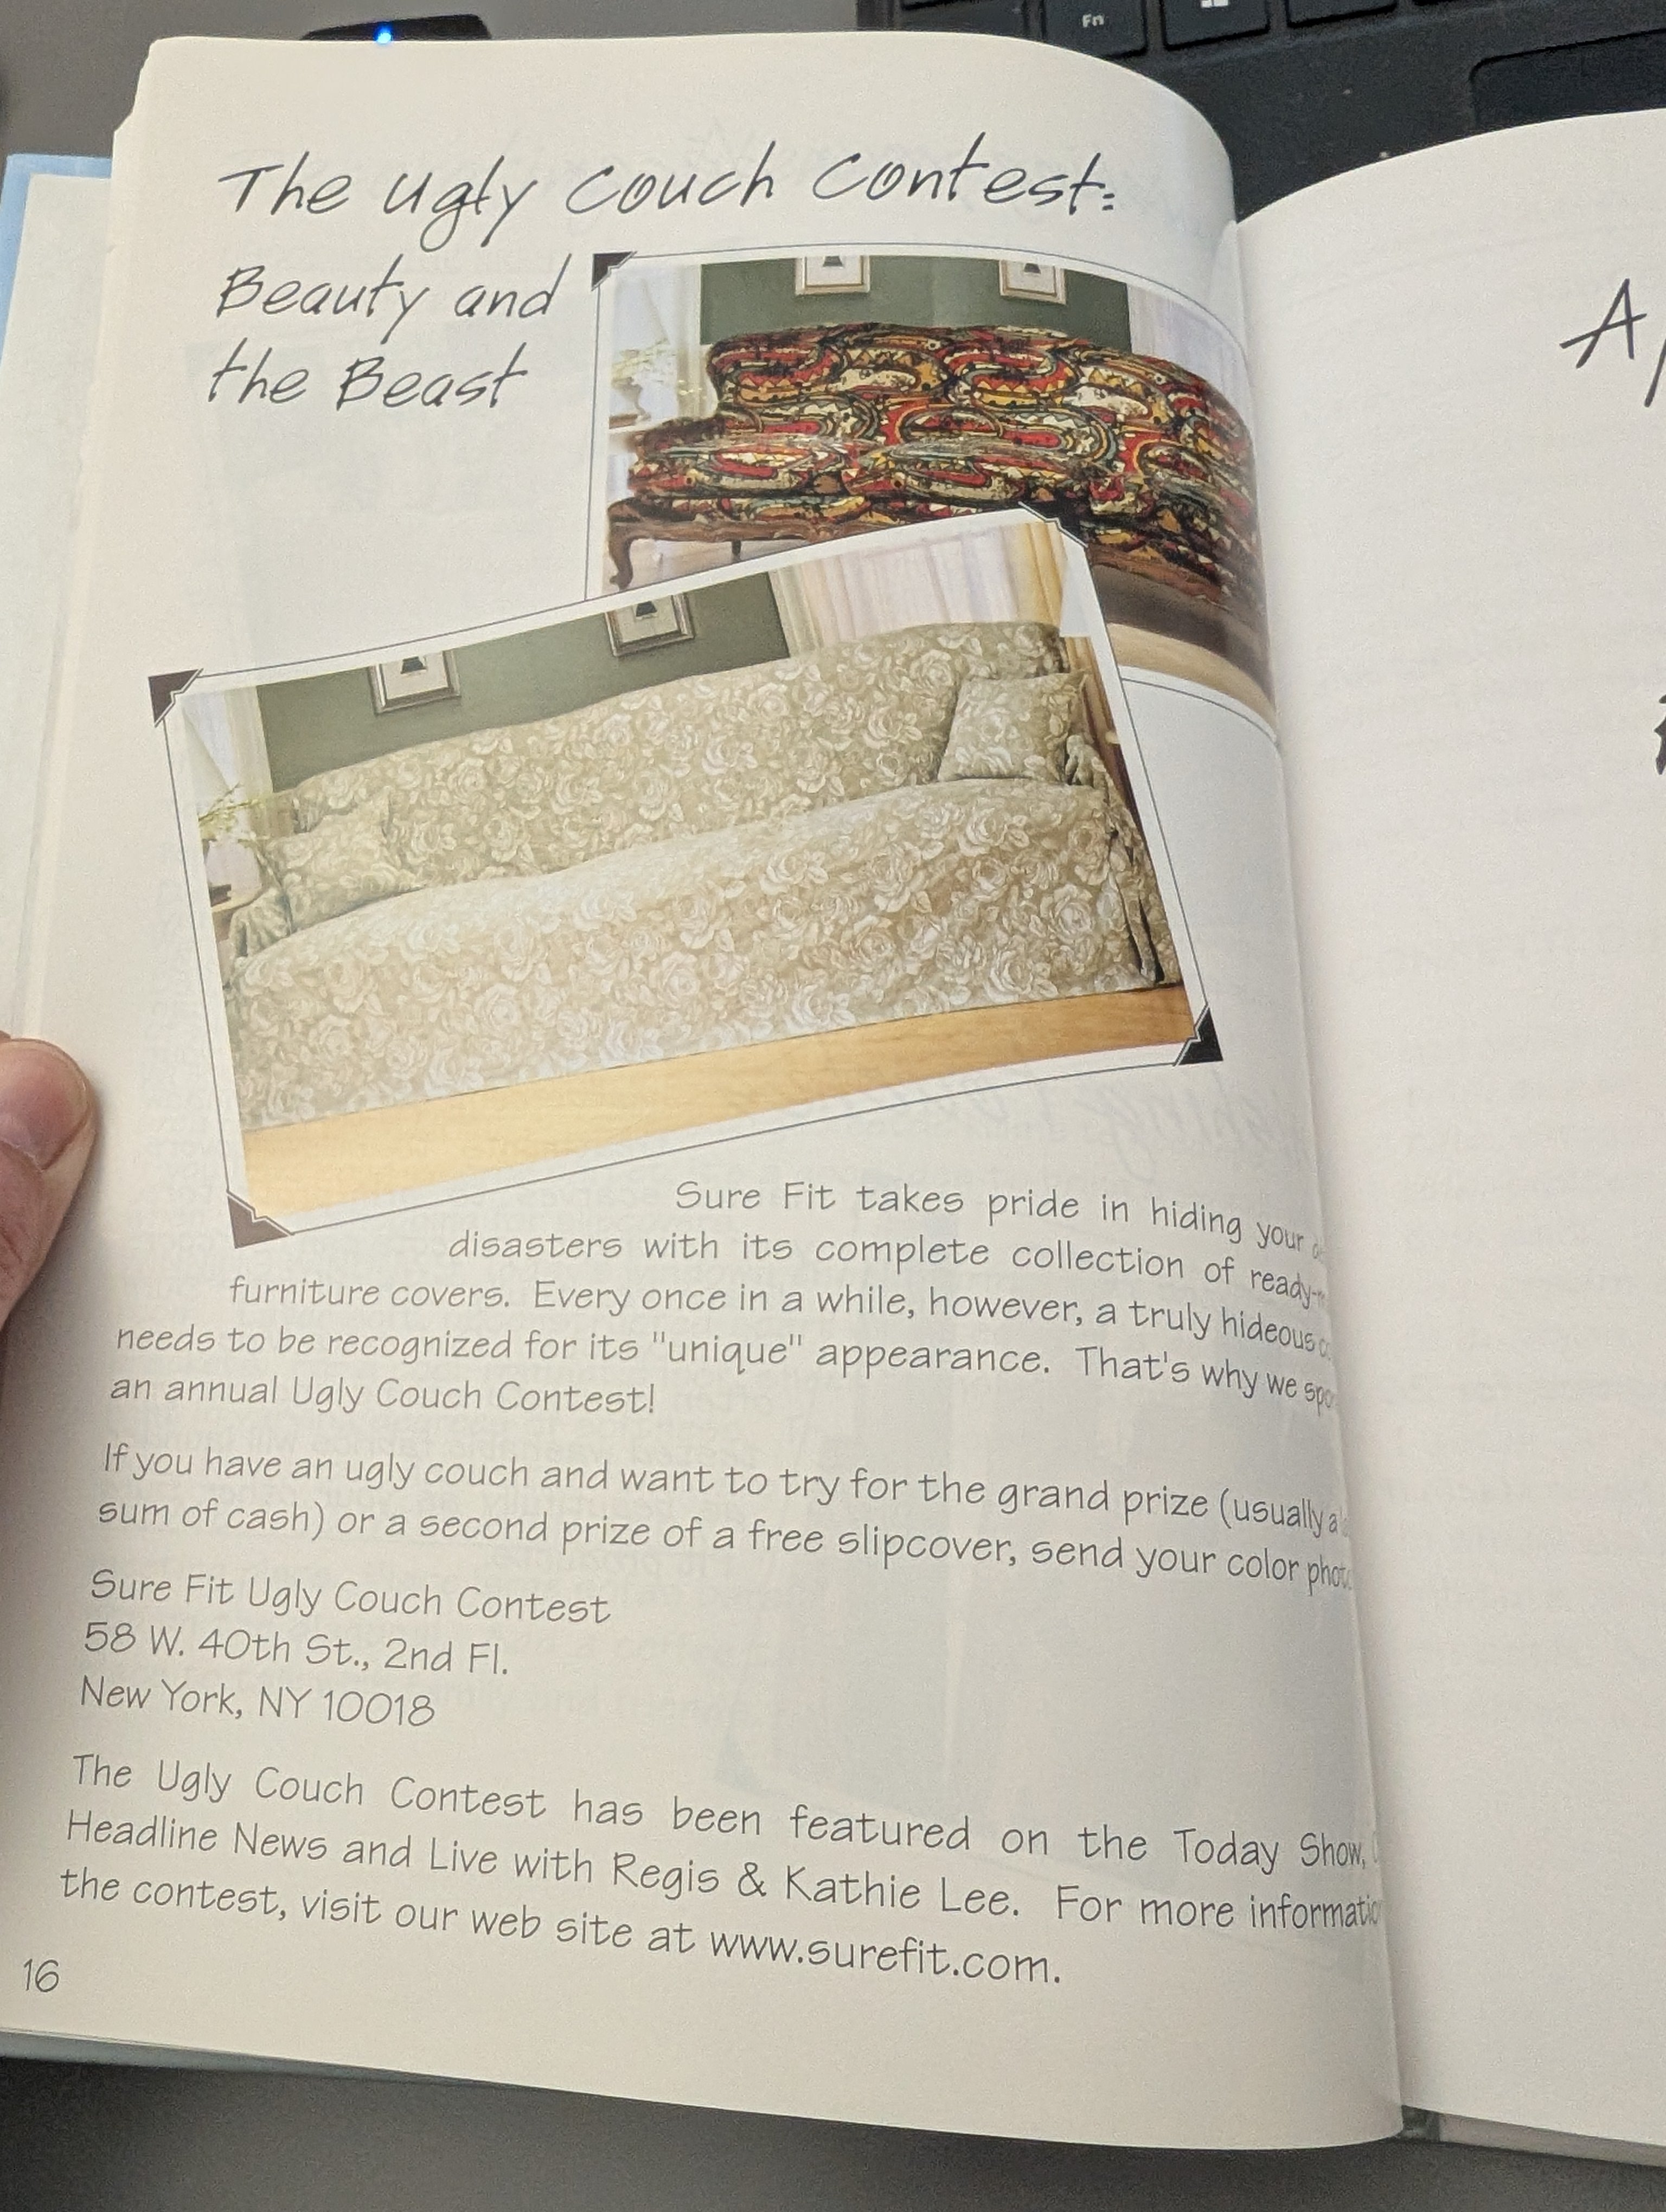 Fn
The Ugly Couch Contest:
Beauty and
the Beast
Sure Fit takes pride in hiding your
disasters with its complete collection of
furniture covers. Every once in a while, however, a truly hideous
needs to be recognized for its "unique" appearance. That's why we
an annual Ugly Couch Contest!
If you have an ugly couch and want to try for the grand prize (usually a
sum of cash) or a second prize of a free slipcover, send your color
Sure Fit Ugly Couch Contest
58 W. 40th St., 2nd Fl.
New York, NY 10018
The Ugly Couch Contest has been featured on the Today Show,
Headline News and Live with Regis & Kathie Lee. For more
the contest, visit our web site at www.surefit.com.
16